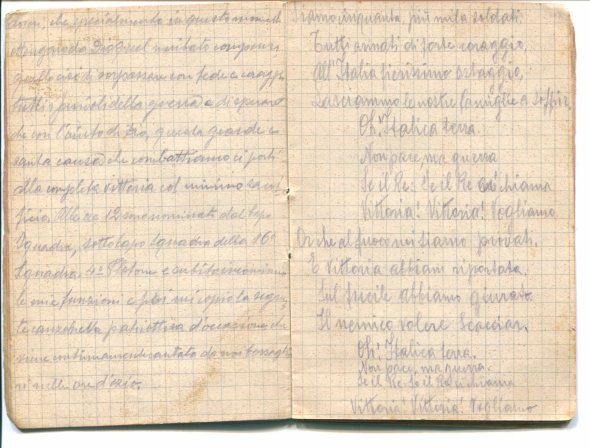 che specialmente in questo momento
quello cioè di sorpassare con fede e coraggio
tutti i pericoli della guerra e di sperare
che con l'aiuto di Dio, questa grande e
santa causa che combattiamo ci porti
alla completa vittoria col minimo sacri-
ficio. Alle ore 12 sono nominati dal Capo
Squadra, sotto capo squadra della 16ª
Squadra. 4º Plotone e subito incomincio
le mie funzioni e poi mi copio la seguen
te canzonetta patriottica d'occasione che
viene continuamente cantata da noi bersagli
eri nelle ore d'ozio.
Siamo cinquanta, più mila soldati.
Tutti armati di forte coraggio,
All'Italia fierissimo ostaggio,
Lasciammo le nostre famiglie a soffrir,
Oh! Italica terra.
Non pace, ma guerra
Se il Re: Se il Re ci chiama
Vittoria! Vittoria! Vogliamo
Or che al fuoco noi siamo provati.
E Vittoria abbiam riportata.
Sul fucile abbiamo giurato.
Il nemico volere scacciar.
Oh! Italica terra.
Non pace, ma guerra.
Se il Re: Se il Re ci chiama
Vittoria! Vittoria! Vogliamo